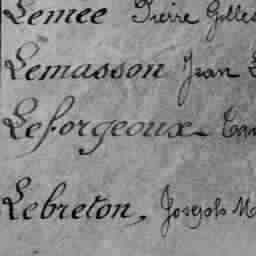 Lemée Pierre Gilles
Lemasson Jean
Leforgeoux
Lebreton, Joseph M